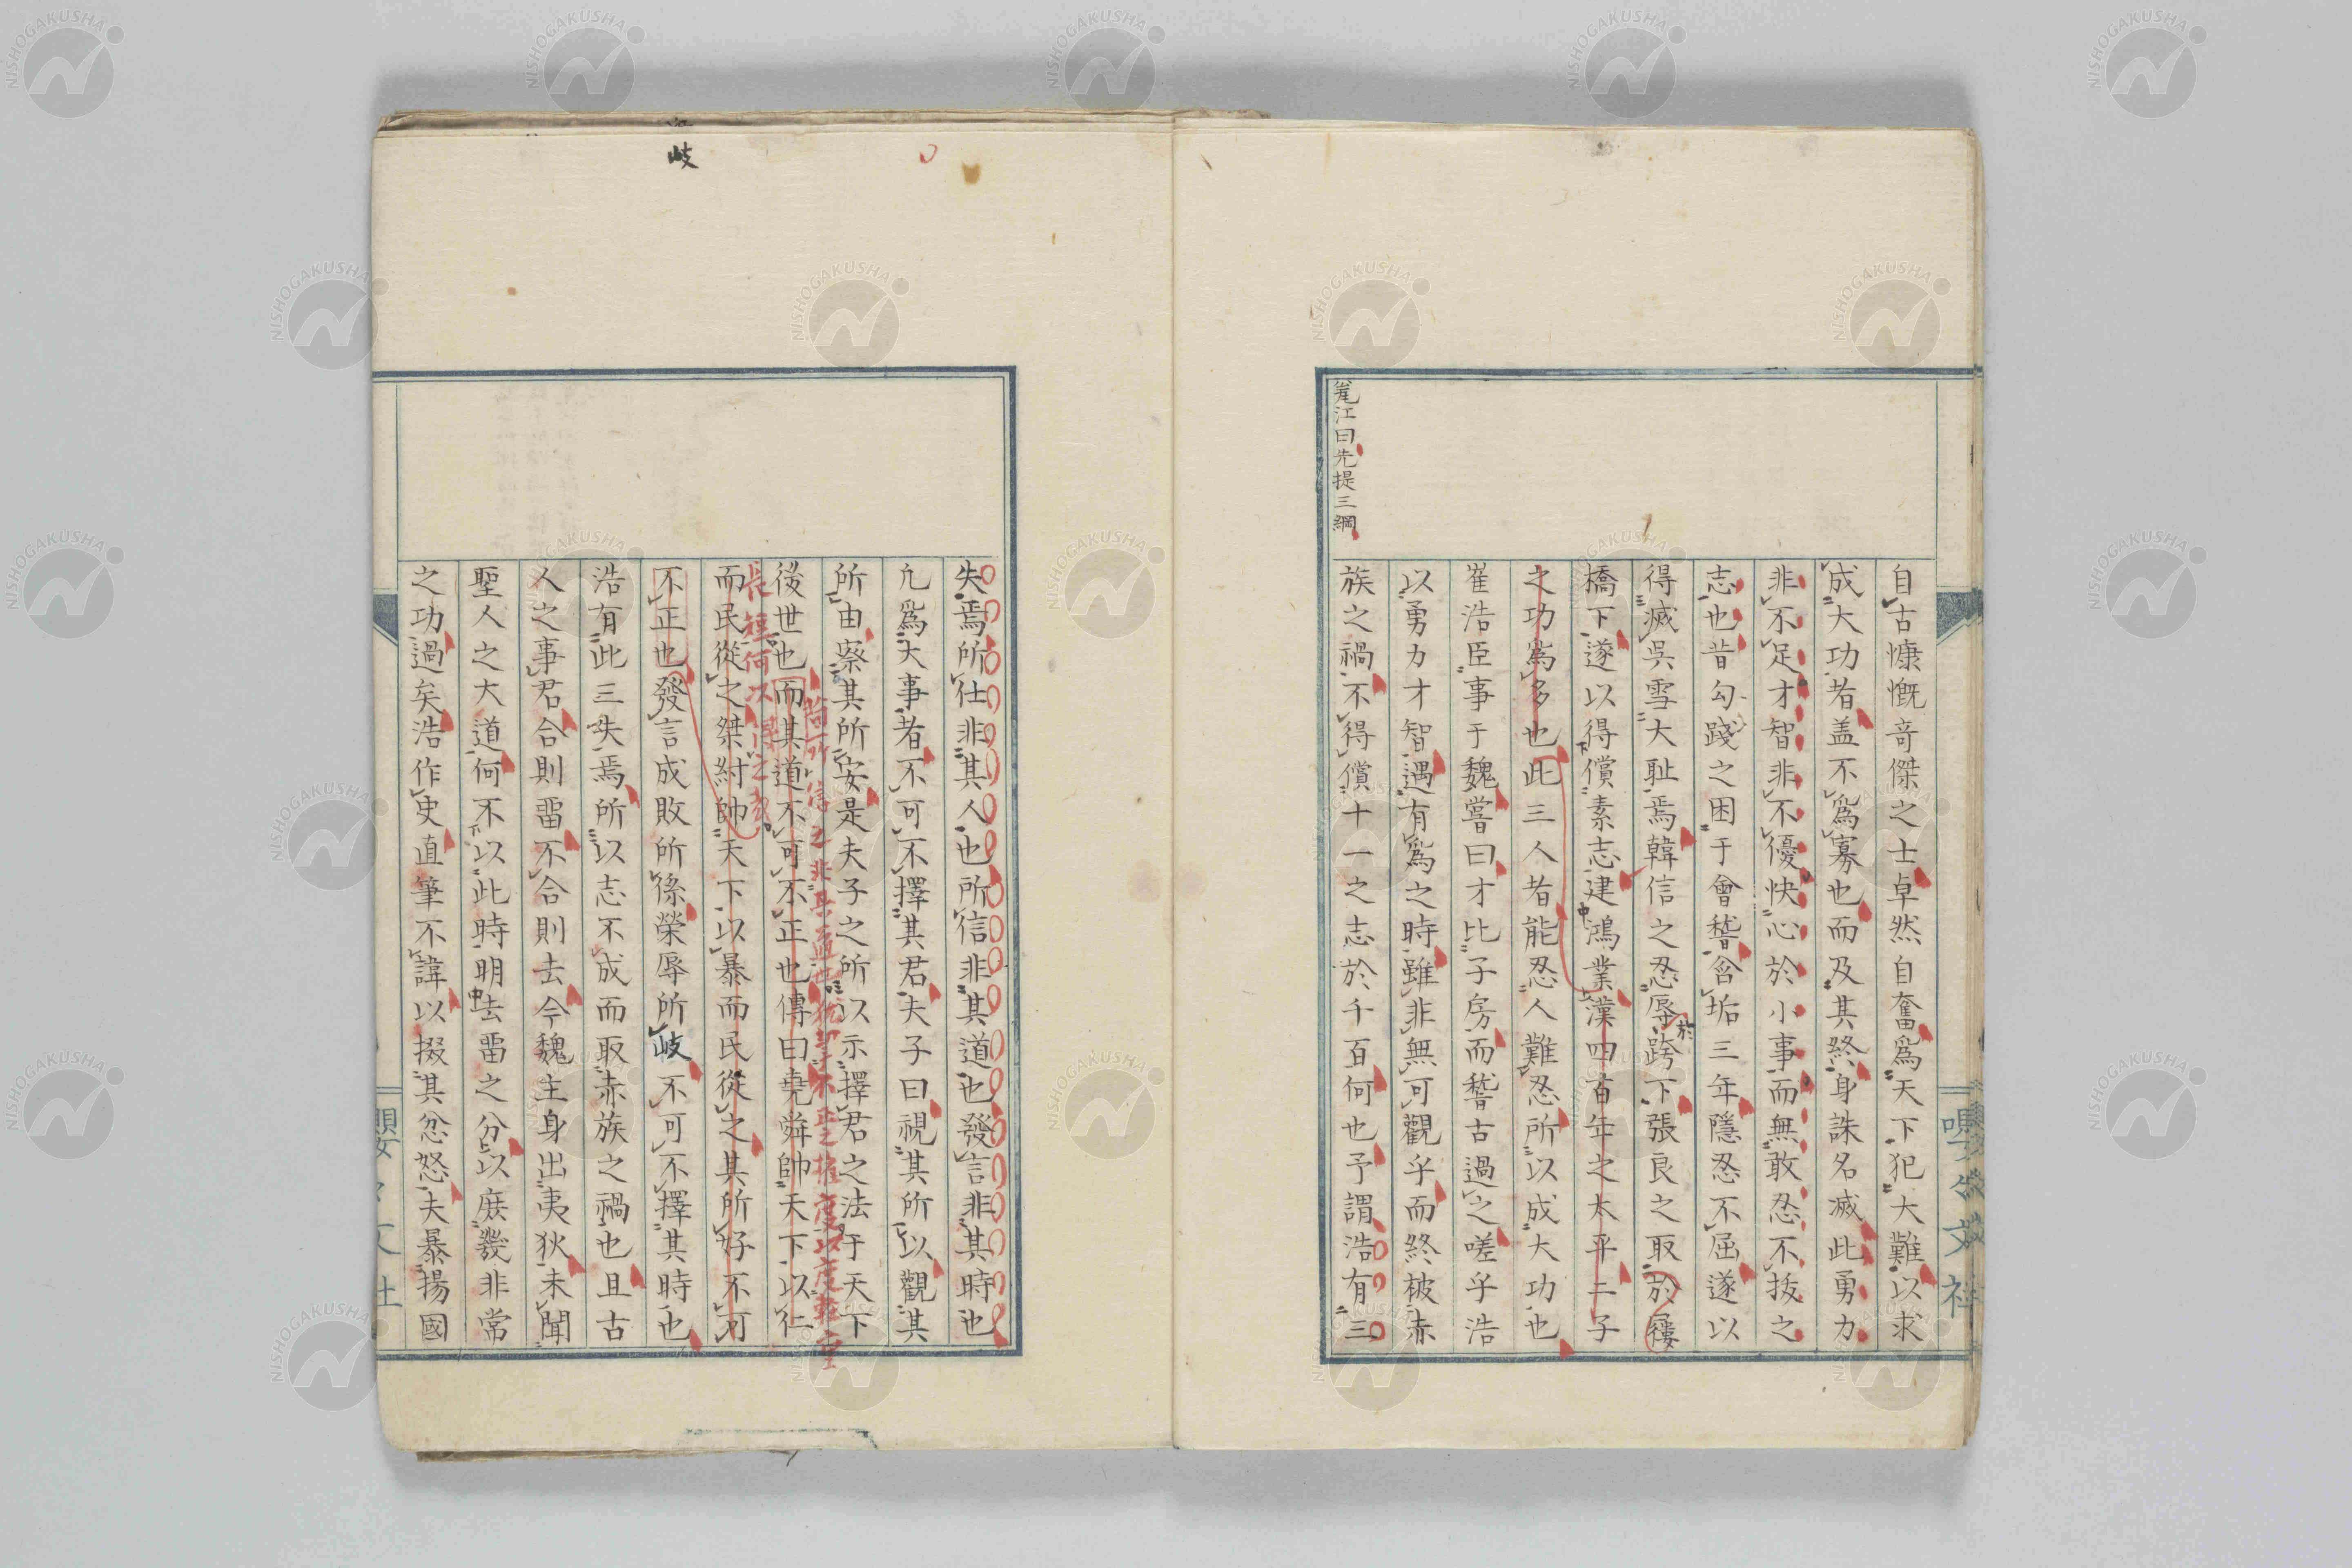 自古慷慨奇傑之士卓然自奮爲天下犯大難以求
成大功者盖不爲寡也而及其終身誅名滅此勇力
非不足才智非不優快心於小事而無敢忍不拔之
志也昔勾踐之困于會稽含垢三年隱忍不屈遂以
得滅吳雪大耻焉韓信之忍辱於跨下張良之取於履
橋下遂以得償素志建鴻業漢四百年之太平二子
之功爲多也此三人者能忍人難忍所以成大功也
崔浩臣事于魏嘗曰才比子房而稽古過之嗟乎浩
以勇力才智遇有爲之時雖非無可觀乎而終被赤
族之禍不得償十一之志於千百何也予謂浩有三
江曰先提三綱
嚶々文社
失焉所仕非其人也所信非其道也發言非其時也
凢爲大事者不可不擇其君夫子曰視其所以觀其
所由察其所安是夫子之所以示擇君之法于天下
後世也而其道不可不正也傳曰堯舜帥天下以仁
而民從之桀紂帥天下以暴而民從之其所好不可
不正也發言成敗所係榮辱所岐不可不擇其時也
浩有此三失焉所以志不成而取赤族之禍也且古
人之事君合則畱不合則去今魏主身出夷狄未聞
聖人之大道何不以此時明去畱之分以庶幾非常
之功過矣浩作史直筆不諱以掇其忿怒夫暴揚國
岐
嚶々文社
NISHOGAKUSHA